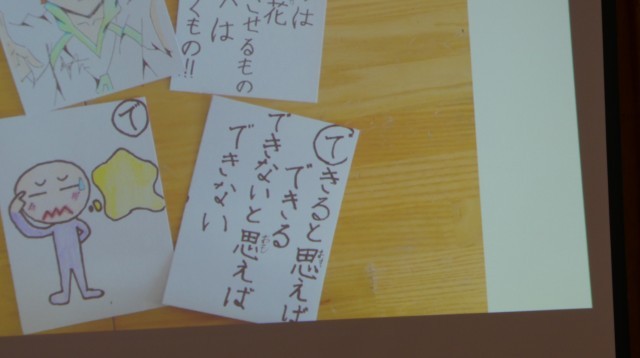 は
花
させるもの
は
くもの!!
て
できると思えば
できる
できないと思えば
できない